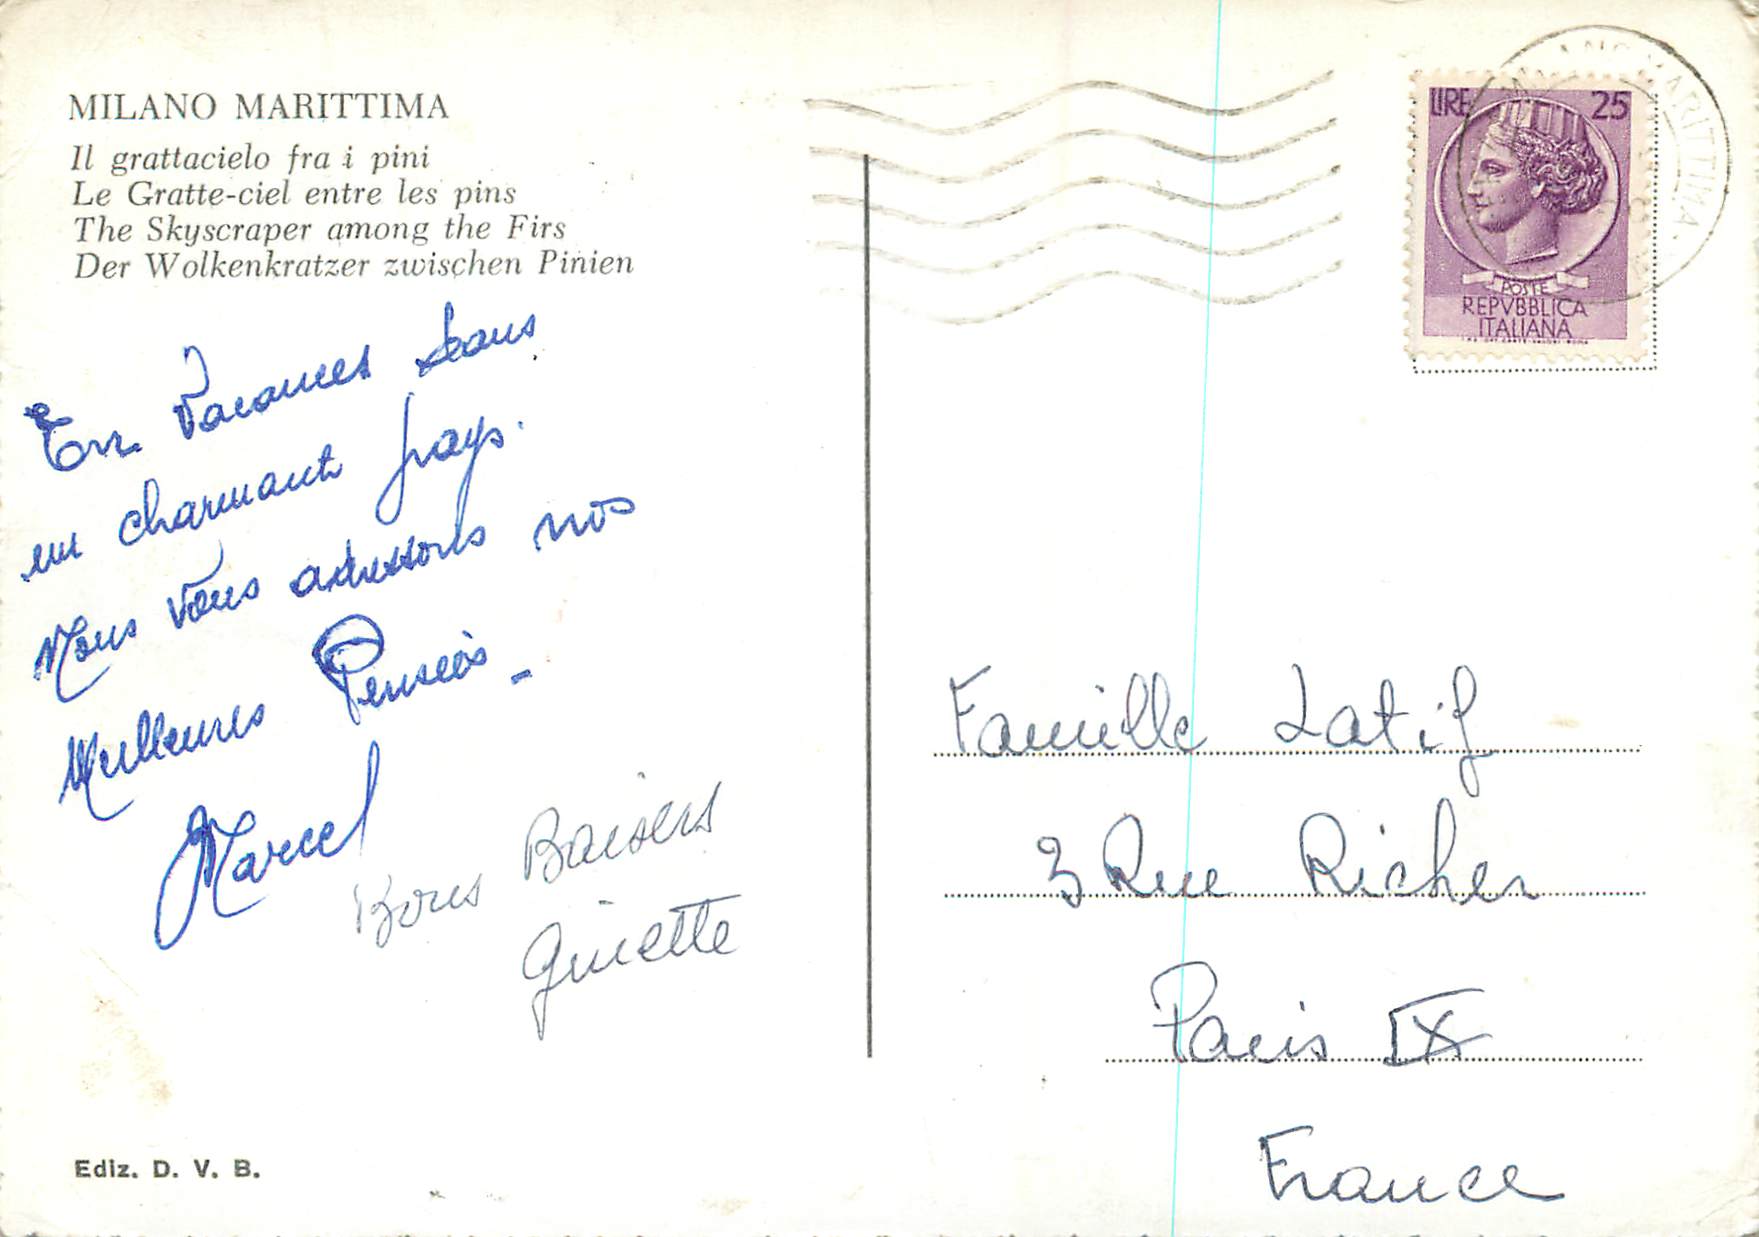 MILANO MARITTIMA
Il grattacielo fra i pini
Le Gratte-ciel entre les pins
The Skyscraper among the Firs
Der Wolkenkratzer zwischen Pinien
En Vacances dans
un charmant pays.
Nous Vous adressons nos
Meilleures Pensées -
Marcel
Bons Baisers
Ginette
Ediz. D. V. B.
LIRE 25
POSTE
REPVBBLICA
ITALIANA
MILANO MARITTIMA
Famille Latif
3 Rue Richer
Paris IX
France